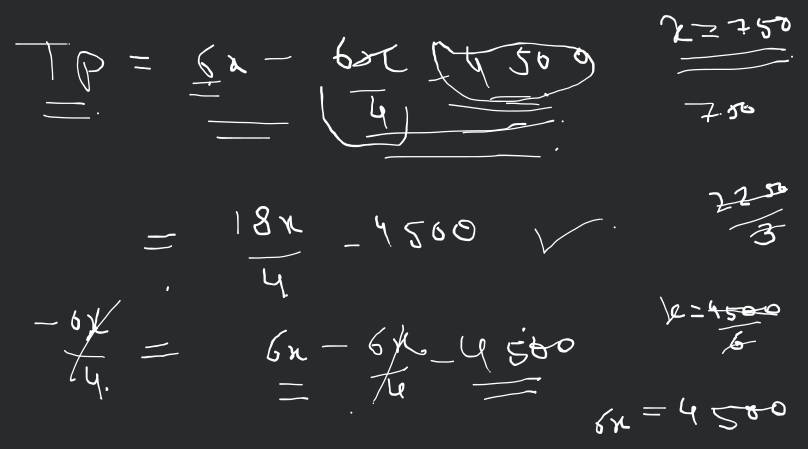 TP = 6x - 6x/4 - 4500
x = 750
7.50
= 18x/4 - 4500 ✓
2250/3
- 6x/4 = 6x - 6x/4 - 4500
x = 4500/6
6x = 4500